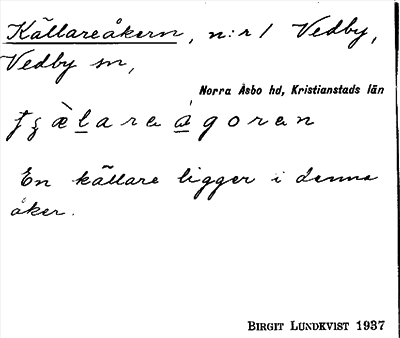 Källareåkern, n:r 1 Vedby,
Vedby sn,
Norra Åsbo hd, Kristianstads län
En källare ligger i denna
åker.
BIRGIT LUNDKVIST 1937